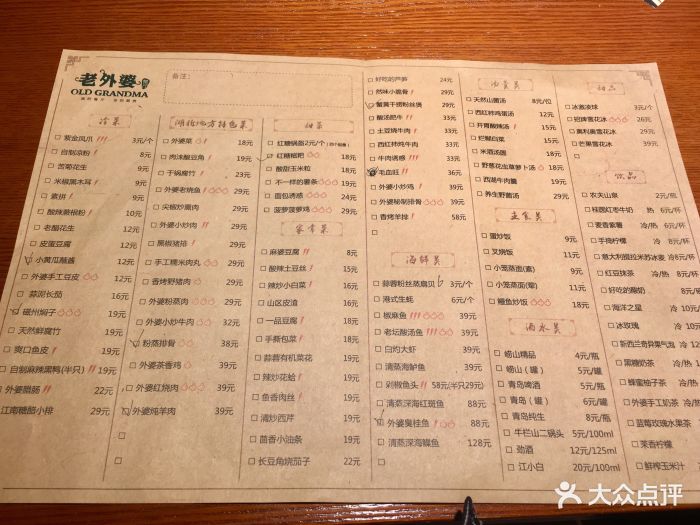 老外婆
OLD GRANDMA
备注:
冷菜
紫金凤爪 3元/个
自制凉粉 8元
苦菊花生 9元
米椒黑木耳 9元
素拼 9元
酸辣蕨根粉 10元
老醋花生 12元
皮蛋豆腐 12元
小黄瓜蘸酱 12元
外婆手工豆皮 12元
蒜泥长茄 16元
碳州焖子 19元
天然鲜腐竹 19元
爽口鱼皮 19元
自制麻辣黑鸭(半只) 22元
外婆腊肠 22元
江南糖醋小排 29元
湖北地方特色菜
外婆菜 18元
肉沫酸豆角 19元
干锅腐竹 23元
外婆老烧鱼 29元
尖椒炒腐肉 29元
外婆小炒肉 29元
黑椒猪排 29元
手工糯米肉丸 29元
香烤野猪肉 29元
外婆粉蒸肉 29元
外婆小炒牛肉 32元
粉蒸排骨 38元
外婆茶香鸡 39元
外婆红烧肉 39元
外婆炖羊肉 39元
甜菜
红糖锅盔 2元/个
红糖糍粑 18元
酸甜玉米粒 18元
不一样的薯条 19元
面包诱惑 24元
菠萝菠萝鸡 29元
家常菜
麻婆豆腐 8元
酸辣土豆丝 15元
辣炒小白菜 15元
山区皮渣 16元
一品豆腐 18元
手撕包菜 18元
蒜蓉有机菜花 19元
辣炒花蛤 19元
鱼香肉丝 19元
清炒西芹 19元
茴香小油条 19元
长豆角烧茄子 22元
好吃的芦笋 24元
然味小脆骨 29元
蟹黄干捞粉丝煲 29元
酸汤肥牛 29元
土豆烧牛肉 29元
西红柿炖牛肉 29元
牛肉诱惑 33元
毛血旺 36元
外婆小炒鸡 39元
外婆秘制排骨 39元
香烤羊排 58元
海鲜类
蒜蓉粉丝蒸扇贝 6元/个
港式生蚝 6元/个
椒麻鱼 39元
老坛酸汤鱼 39元
白灼大虾 39元
清蒸海鲈鱼 39元
剁椒鱼头 58元(半只29元)
清蒸深海红斑鱼 88元
外婆臭桂鱼 88元
清蒸深海鲽鱼 128元
汤羹类
天然山菌汤 8元/位
西红柿鸡蛋汤 12元
开胃酸辣汤 15元
拦糊白菜 15元
米酒汤圆 18元
野葱花虫草萝卜汤 18元
西湖牛肉羹 18元
养生野菌汤 24元
主食类
蛋炒饭 9元
叉烧饭 11元
小笼蒸面(素) 9元
小笼蒸面(荤) 18元
鳗鱼炒饭 18元
酒水类
崂山精品 4元/瓶
崂山(罐) 5元/罐
青岛啤酒 5元/瓶
青岛(罐) 6元/罐
青岛纯生 8元/瓶
牛栏山二锅头 5元/100ml
劲酒 12元/125ml
江小白 20元/100ml
甜品
冰激凌球 3元/个
招牌雪花冰
奥利奥雪花冰
芒果雪花冰
饮品
农夫山泉 2元/瓶
桂圆红枣牛奶 热
麦香紫薯 热
手捣柠檬 冷
意大利提拉米苏冰麦
红豆抹茶 冷/热
好吃的酸奶
海洋之星
冰玫瑰
新西兰奇异果气泡
黑糖奶茶
蜂蜜柚子茶
外婆手工奶茶
蓝莓玫瑰水果茶
茉香柠檬
鲜榨玉米汁
大众点评